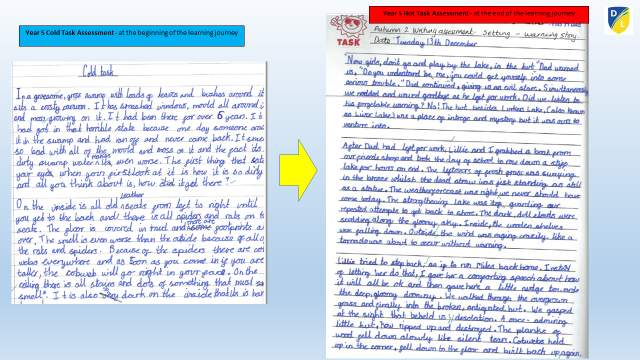 Year 5 Cold Task Assessment - at the beginning of the learning journey
Cold task
In a gruesome, gross swamp with loads of leaves and bushes around it
sits a crusty caravan. It has smashed windows, mould all around i
and moss growing on it. It had been there for over 6 years. It
had got in that horrible state because one day someone
it in the swamp and had run off and never came back. It
so bad with all of the mould and moss on it and the fact
dirty swamp water makes even worse. The first thing that
your eyes when your first look at it is how it is so dirty
and all you think about is, how did it get there?
On the inside is all old seats from left to right until
you get to the back and there is all spiders and rats on
seats. The floor is covered in mud and footprints
over. The smell is even worse than the outside because of all
the rats and spiders. Because of the spiders there are
webs everywhere and as soon as you come in if you are
taller, the cobweb will go right in your face. On the
ceiling there is all stains and dots of something that must
smell. It is also very dark on the inside that it is
Year 5 Hot Task Assessment - at the end of the learning journey
TASK
Autumn 2 Writing assessment- Setting - Warning story.
Date: Tuesday 13th December
"Now girls, don't go and play by the lake, in the hut" Dad warned
us, "Do you understand me, you could get yourself into some
serious trouble." Dad continued, giving us an evil stare. Simultaneously
we nodded and waved goodbye as he left for work. Did we listen to
his forgetable warning? No! The hut besides Lukes Lake, (also known
as Liver Lake) was a place of intrege and mystery but it was ours to
venture into.
After Dad had left for work, Lillie and I grabbed a boat from
our friends shop and took the day of school to row down a
lake for hours on end. The leftovers of fresh grass was swaying
in the breeze whilst the dead straw was just standing as still
as a statue. The weatherforcast was right, we never should have
come today. The strengthing lake was , guarding our
repeated attempts to get back to shore. The dark, dull clouds were
scudding along the gloomy sky. Inside, the wooden shelves
were falling down. Outside, the wind was raging crazily like a
tornado was about to occur without warning.
Lillie tried to step back, as if to run miles back home. Insted
of letting her do that, I gave her a comforting speach about how
it will all be ok and then gave her a little nudge
the deep, gloomy doorway. We walked through the overgrown
grass and finally into the broken, antiqated hut. We gasped
at the sight that beheld us; desolation. A once - admiring
little hut, now ripped up and destroyed. The planks of
wood fell down slowly like silent tears. Cobwebs held
up in the corner, fell down to the floor and built back up again.